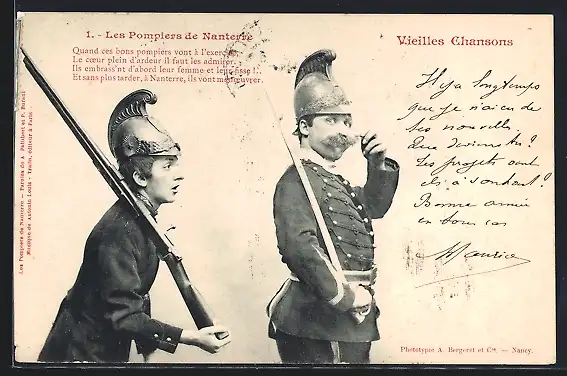 1. - Les Pompiers de Nanterre
Quand ces bons pompiers vont à l'exercice,
Le cœur plein d'ardeur il faut les admirer.
Ils embrass'nt d'abord leur femme et leur fisse !..
Et sans plus tarder, à Nanterre, ils vont manœuvrer.
Vieilles Chansons
Il y a longtemps
que je n'ai eu de
tes nouvelles.
Que deviens-tu ?
Tes projets ont
ils
Bonne année
en tous cas
Maurice
Les Pompiers de Nanterre — Paroles de A. Philibert et F. Burani
Musique de Antonin Louis — Tralin, éditeur à Paris
Phototypie A. Bergeret et Cie. — Nancy.